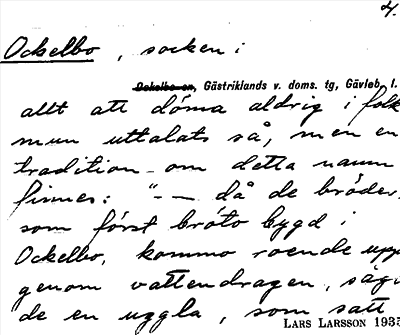 4.
Ockelbo, socken i
Ockelbo sn, Gästriklands v. doms. tg, Gävleb. l.
allt att döma aldrig i folk
mun uttalats så, men en
tradition om detta namn
finnes: "— — då de bröder,
som först bröto bygd i
Ockelbo, kommo roende upp
genom vattendragen, såg
de en uggla, som satt
LARS LARSSON 1935